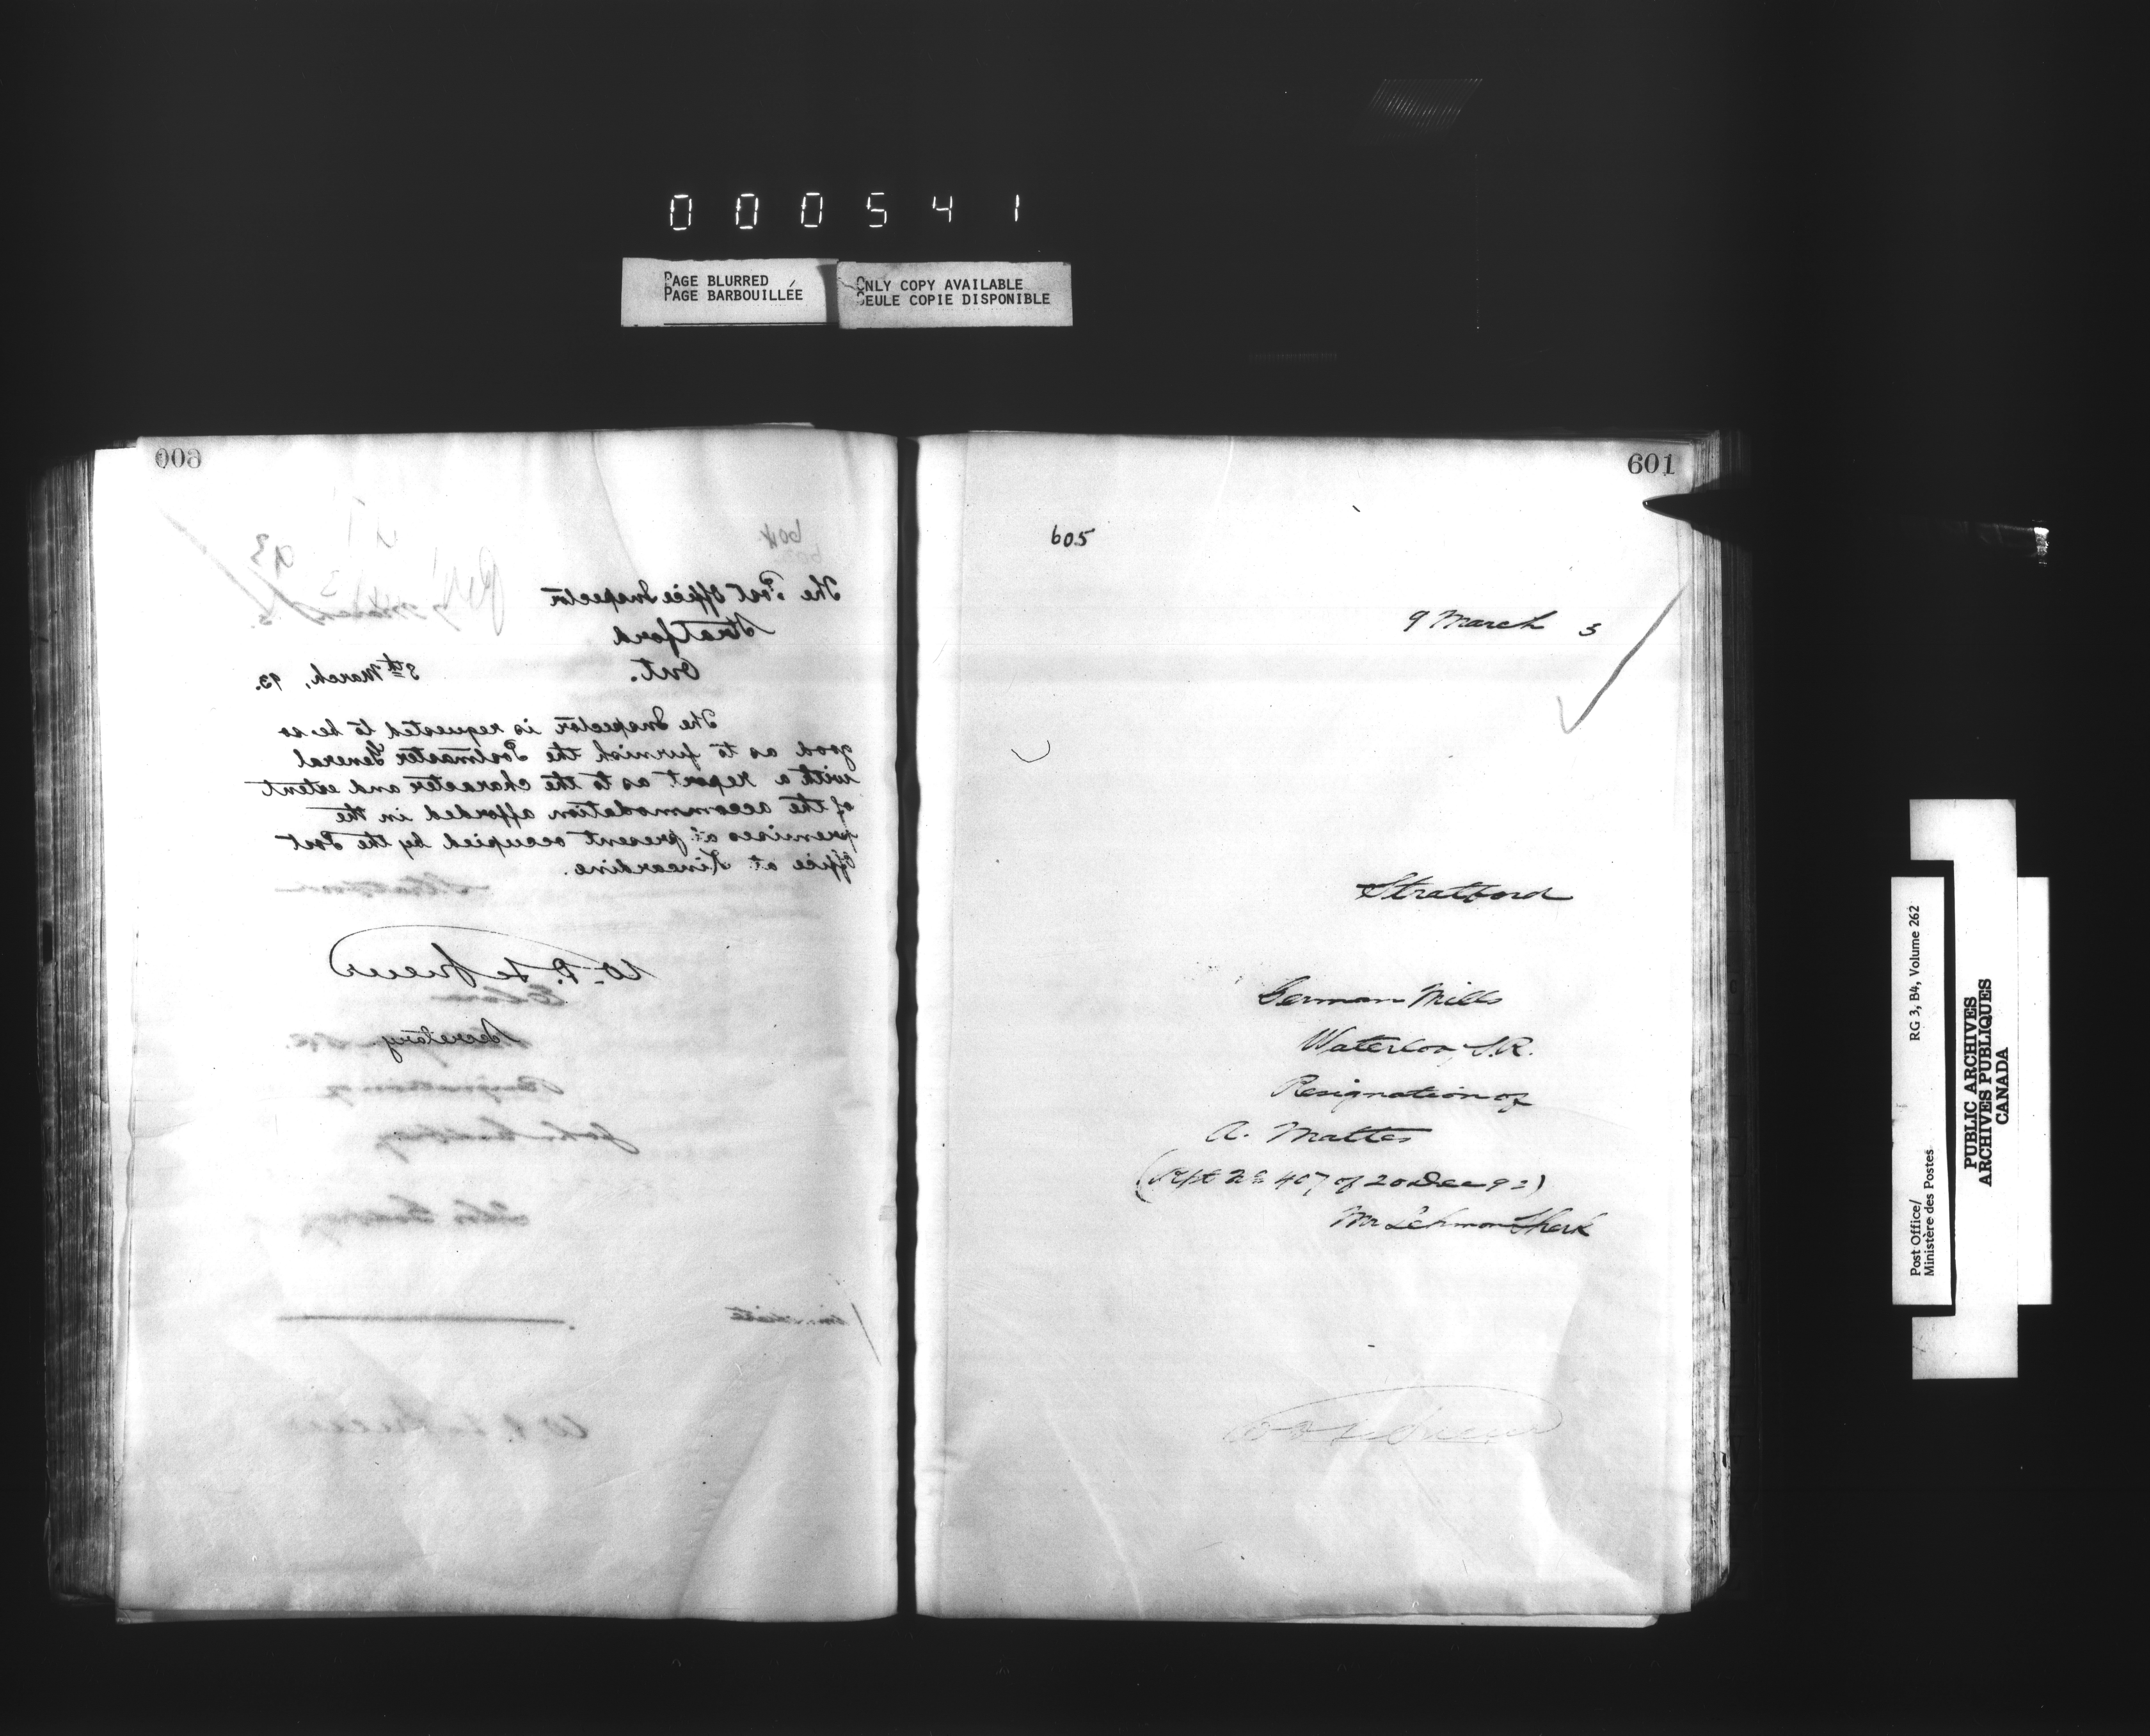 000541
PAGE BLURRED
PAGE BARBOUILLÉE
ONLY COPY AVAILABLE
SEULE COPIE DISPONIBLE
600
604
93
The Post Office Inspector
Stratford
Ont.
8th March, 93.
The Inspector is requested to be so
good as to furnish the Postmaster General
with a report as to the character and extent
of the accommodation afforded in the
premises at present occupied by the Post
Office at Kincardine.
W. D. LeSueur
Secretary.
601
605
9 March 3
Stratford
German Mills
Waterloo, S.R.
Resignation of
A. Mattes
(Rept No 407 of 20 Dec 92)
Mr Lehmon Sherk
Post Office/
Ministère des Postes
RG 3, B4, Volume 262
PUBLIC ARCHIVES
ARCHIVES PUBLIQUES
CANADA